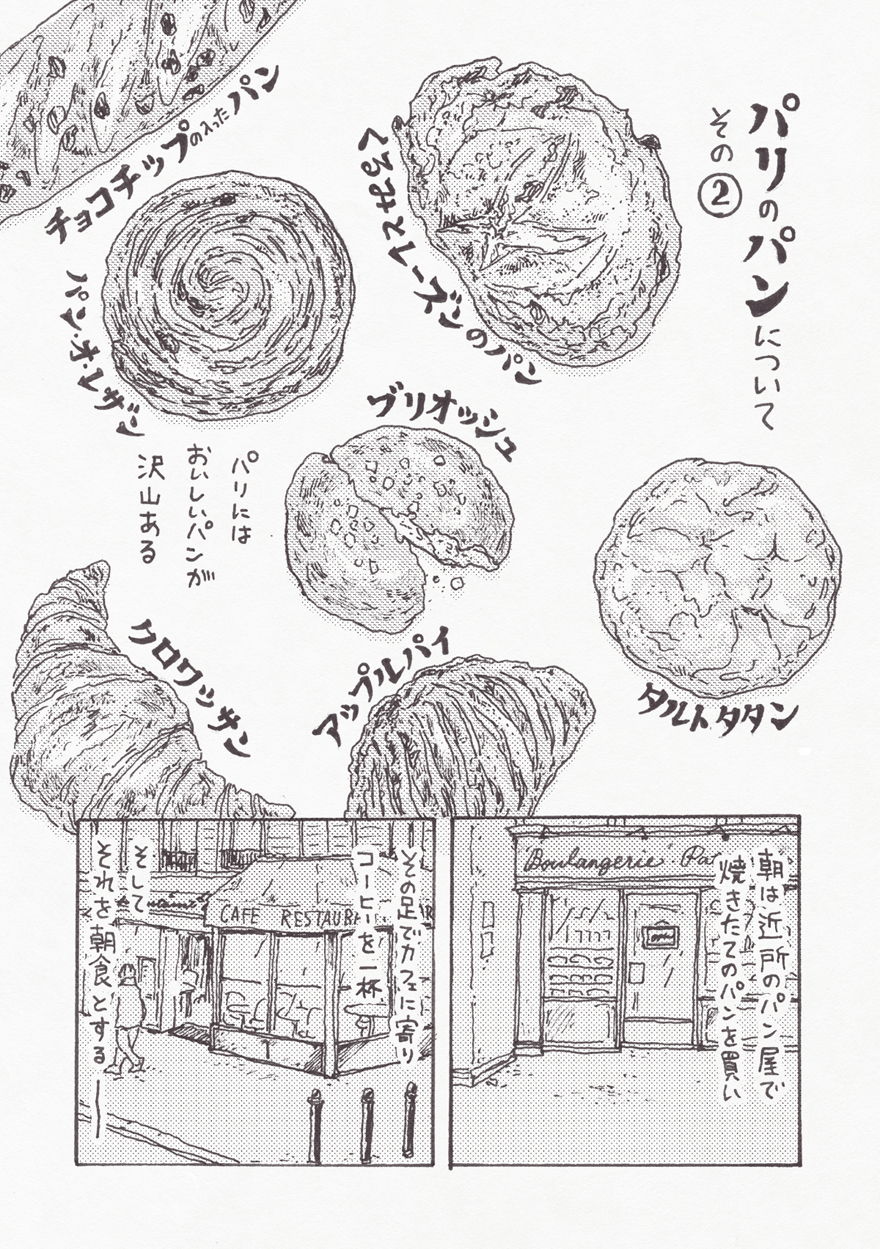 パリのパンについて
その②
くるみとレーズンのパン
チョコチップの入ったパン
パン・オ・レザン
ブリオッシュ
タルトタタン
パリには
おいしいパンが
沢山ある
クロワッサン
アップルパイ
朝は近所のパン屋で
焼きたてのパンを買い
Boulangerie Pat
その足でカフェに寄り
コーヒーを一杯
CAFE RESTAURA
そして
それを朝食とする——